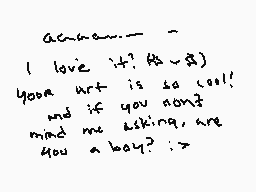 aaaaa....
I love it! (☆ ᴗ ☆)
your art is so cool!
and if you don't
mind me asking, are
you a boy? :>